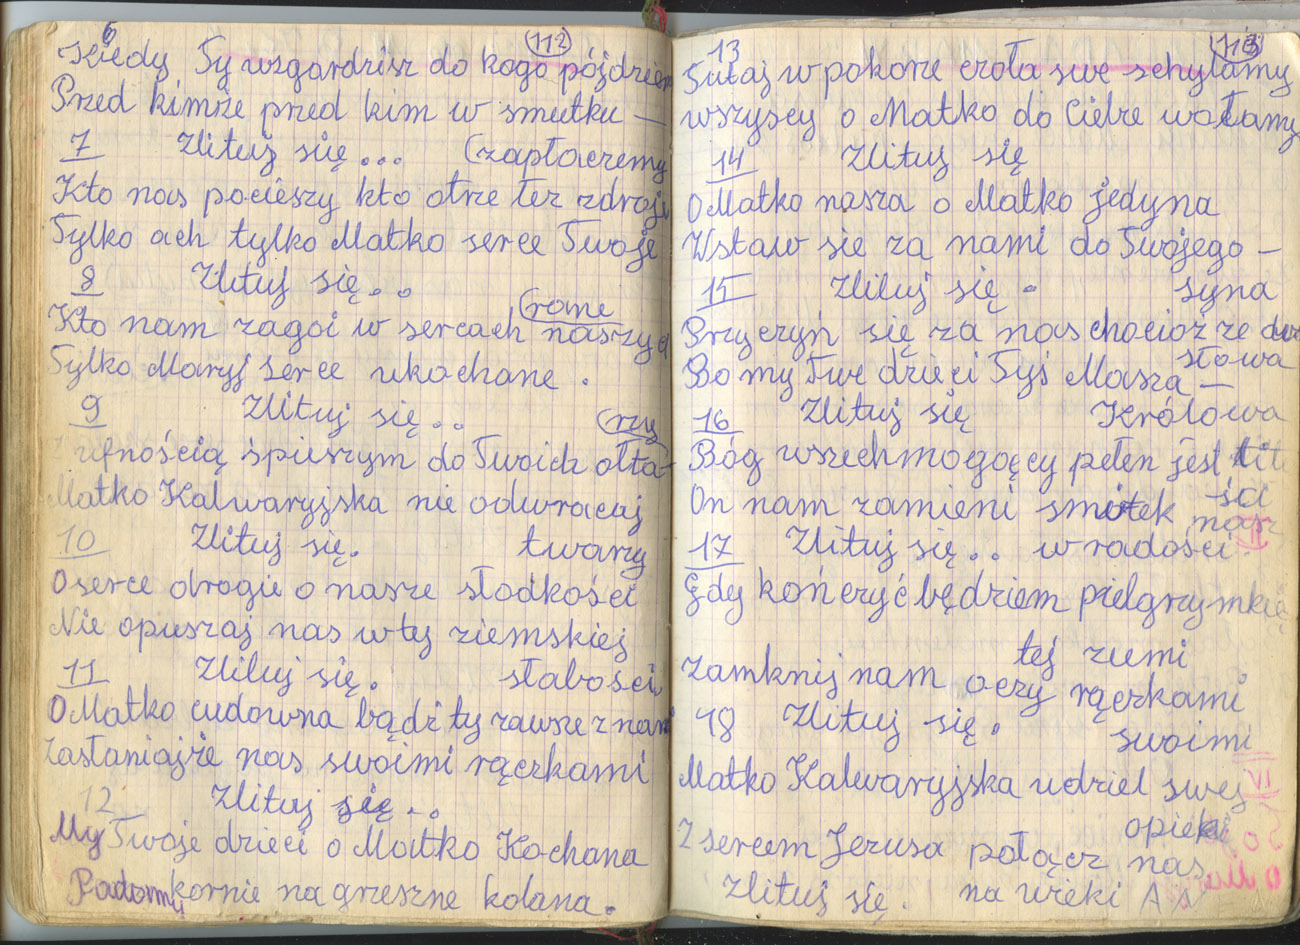 6
112
Kiedy Ty wzgardzisz do kogo pójdziem
Przed kimże przed kim w smutku —
7 Zlituj się... (zapłaczemy
Kto nas pocieszy kto otrze łez zdroje
Tylko ach tylko Matko serce Twoje
8 Zlituj się..
(rane
Kto nam zagoi w sercach naszych
Tylko Maryj serce ukochane.
9 Zlituj się.. (rzy
Z ufnością śpieszym do Twoich ołta-
Matko Kalwaryjska nie odwracaj
10 Zlituj się. twarzy
O serce drogie o nasze słodkości
Nie opuszaj nas w tej ziemskiej
11 Zlituj się. słabości
O Matko cudowna bądź ty zawsze z nami
Zasłaniajże nas swoimi rączkami
12 Zlituj się..
My Twoje dzieci o Matko Kochana
Padamy kornie na grzeszne kolana.
13
113
Tutaj w pokorze czoła swe schylamy
wszyscy o Matko do Ciebie wołamy
14 Zlituj się
O Matko nasza o Matko jedyna
Wstaw sie za nami do Twojego —
15 Zlituj się. syna
Przyczyń się za nas chocioż ze dwa
słowa
Bo my Twe dzieci Tyś Nasza —
16 Zlituj się Królowa
Bóg wszechmogący pełen jest lito
ści
On nam zamieni smutek nasz
17 Zlituj się.. w radości
Gdy kończyć będziem pielgrzymkię
tej ziemi
Zamknij nam oczy rączkami
18 Zlituj się. swoimi
Matko Kalwaryjska udziel swej
opieki
Z sercem Jezusa połącz nas
Zlituj się. na wieki A